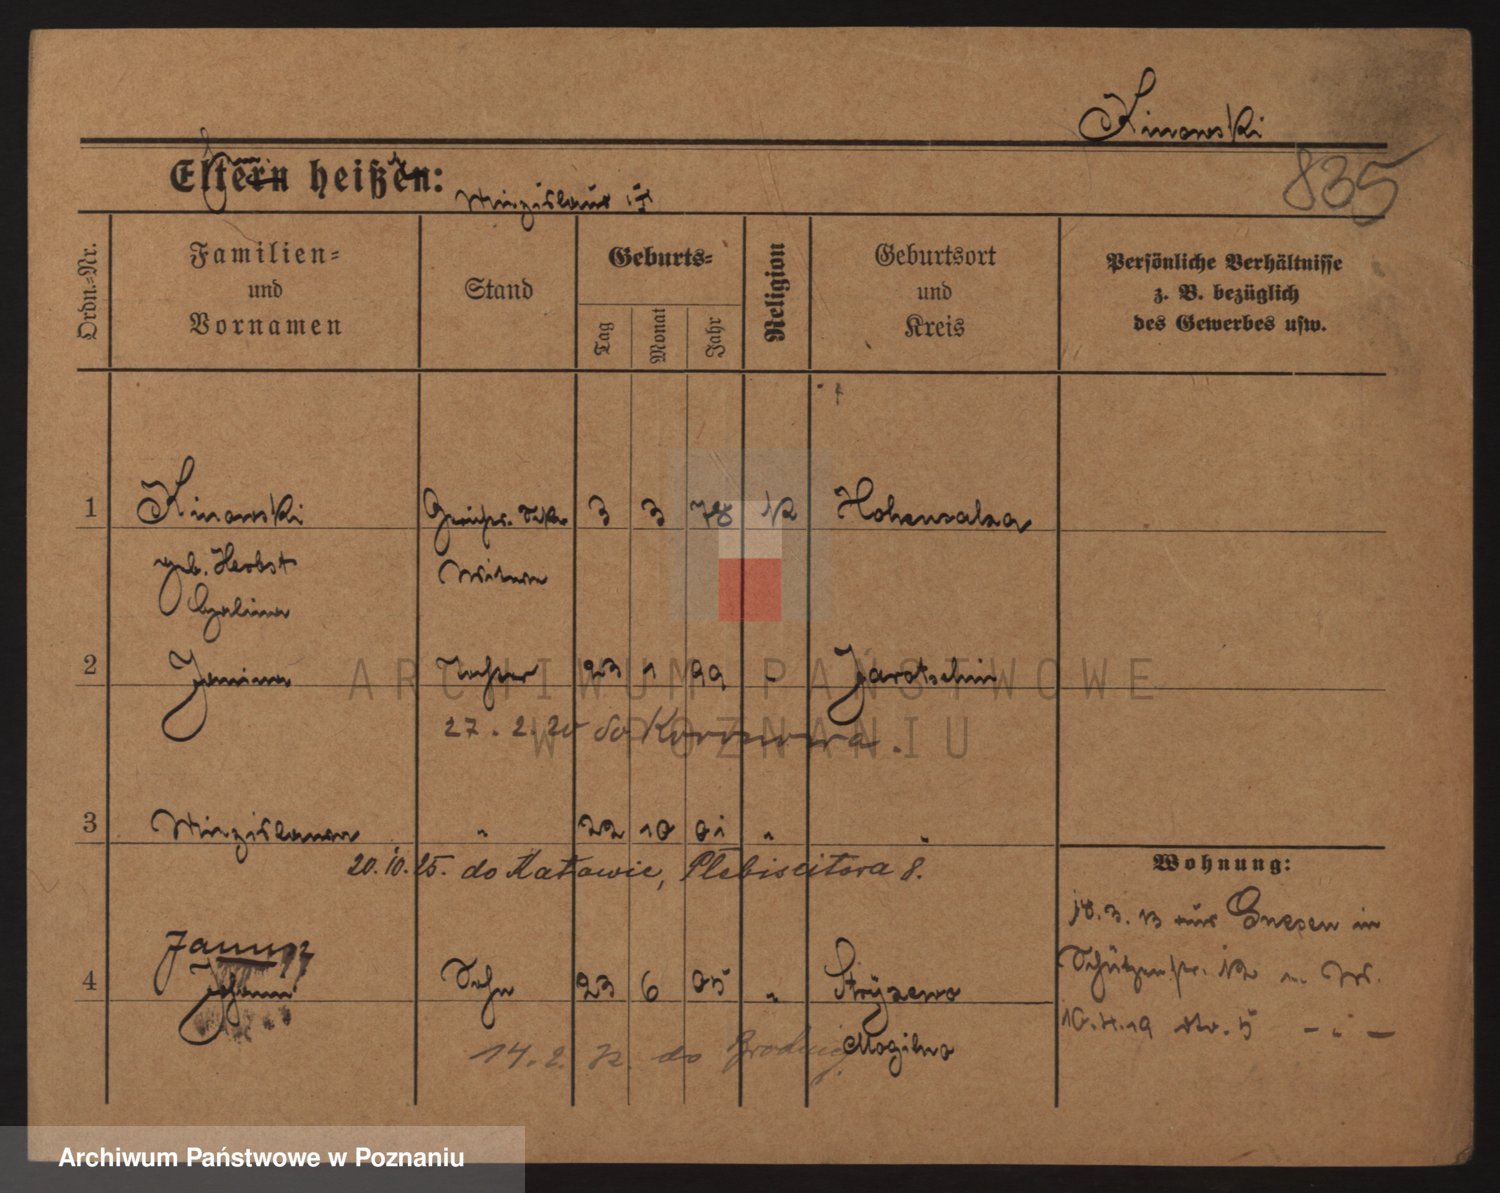 Kinowski
835
Eltern heißen:
Ordn.-Nr.
Familien-
und
Vornamen
Stand
Geburts-
Tag
Monat
Jahr
Religion
Geburtsort
und
Kreis
Persönliche Verhältnisse
z. B. bezüglich
des Gewerbes usw.
1 Kinowski 3 3 78 K Hohensalza
geb. Herbst Witwe
2 Janina Tochter 23 1 99 Jarotschin
27. 2. 20 do Koronowa.
3 " 22 10 01 " "
20.10.25. do Katowic, Plebiscitowa 8.
Wohnung:
18.3.13 aus Gnesen in
Schützenstr.
Janusz
4 Johann Sohn 23 6 05 " Stryzewo
Mogilno
14. 2. do
10.4.19
ARCHIWUM PAŃSTWOWE
W POZNANIU
Archiwum Państwowe w Poznaniu